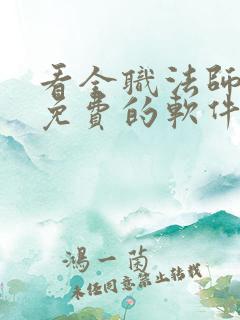 看全職法師
免費的軟件
鴻一菌
未經同意禁止轉載